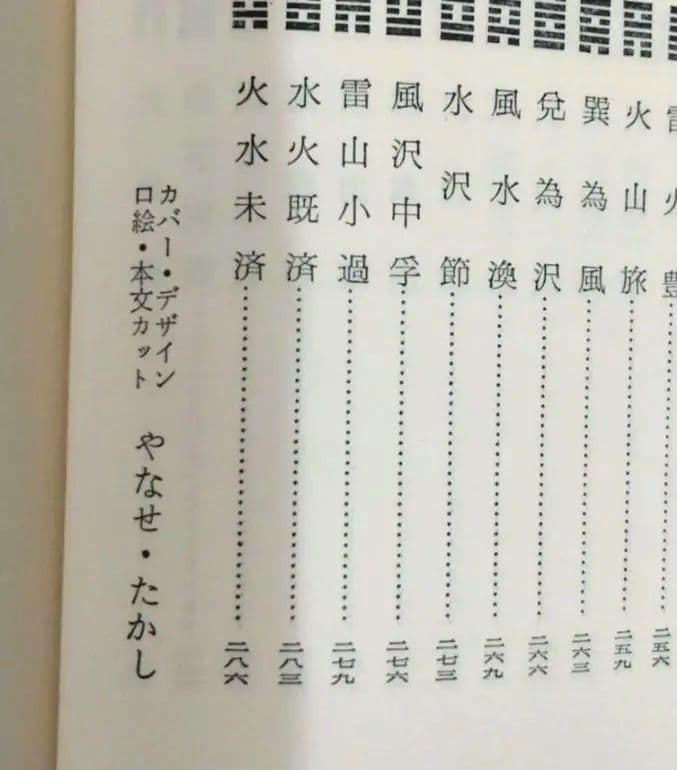 雷火豊……二五六
火山旅……二五九
巽為風……二六三
兌為沢……二六六
風水渙……二六九
水沢節……二七三
風沢中孚……二七六
雷山小過……二七九
水火既済……二八三
火水未済……二八六
カバー・デザイン
口絵・本文カット
やなせ・たかし